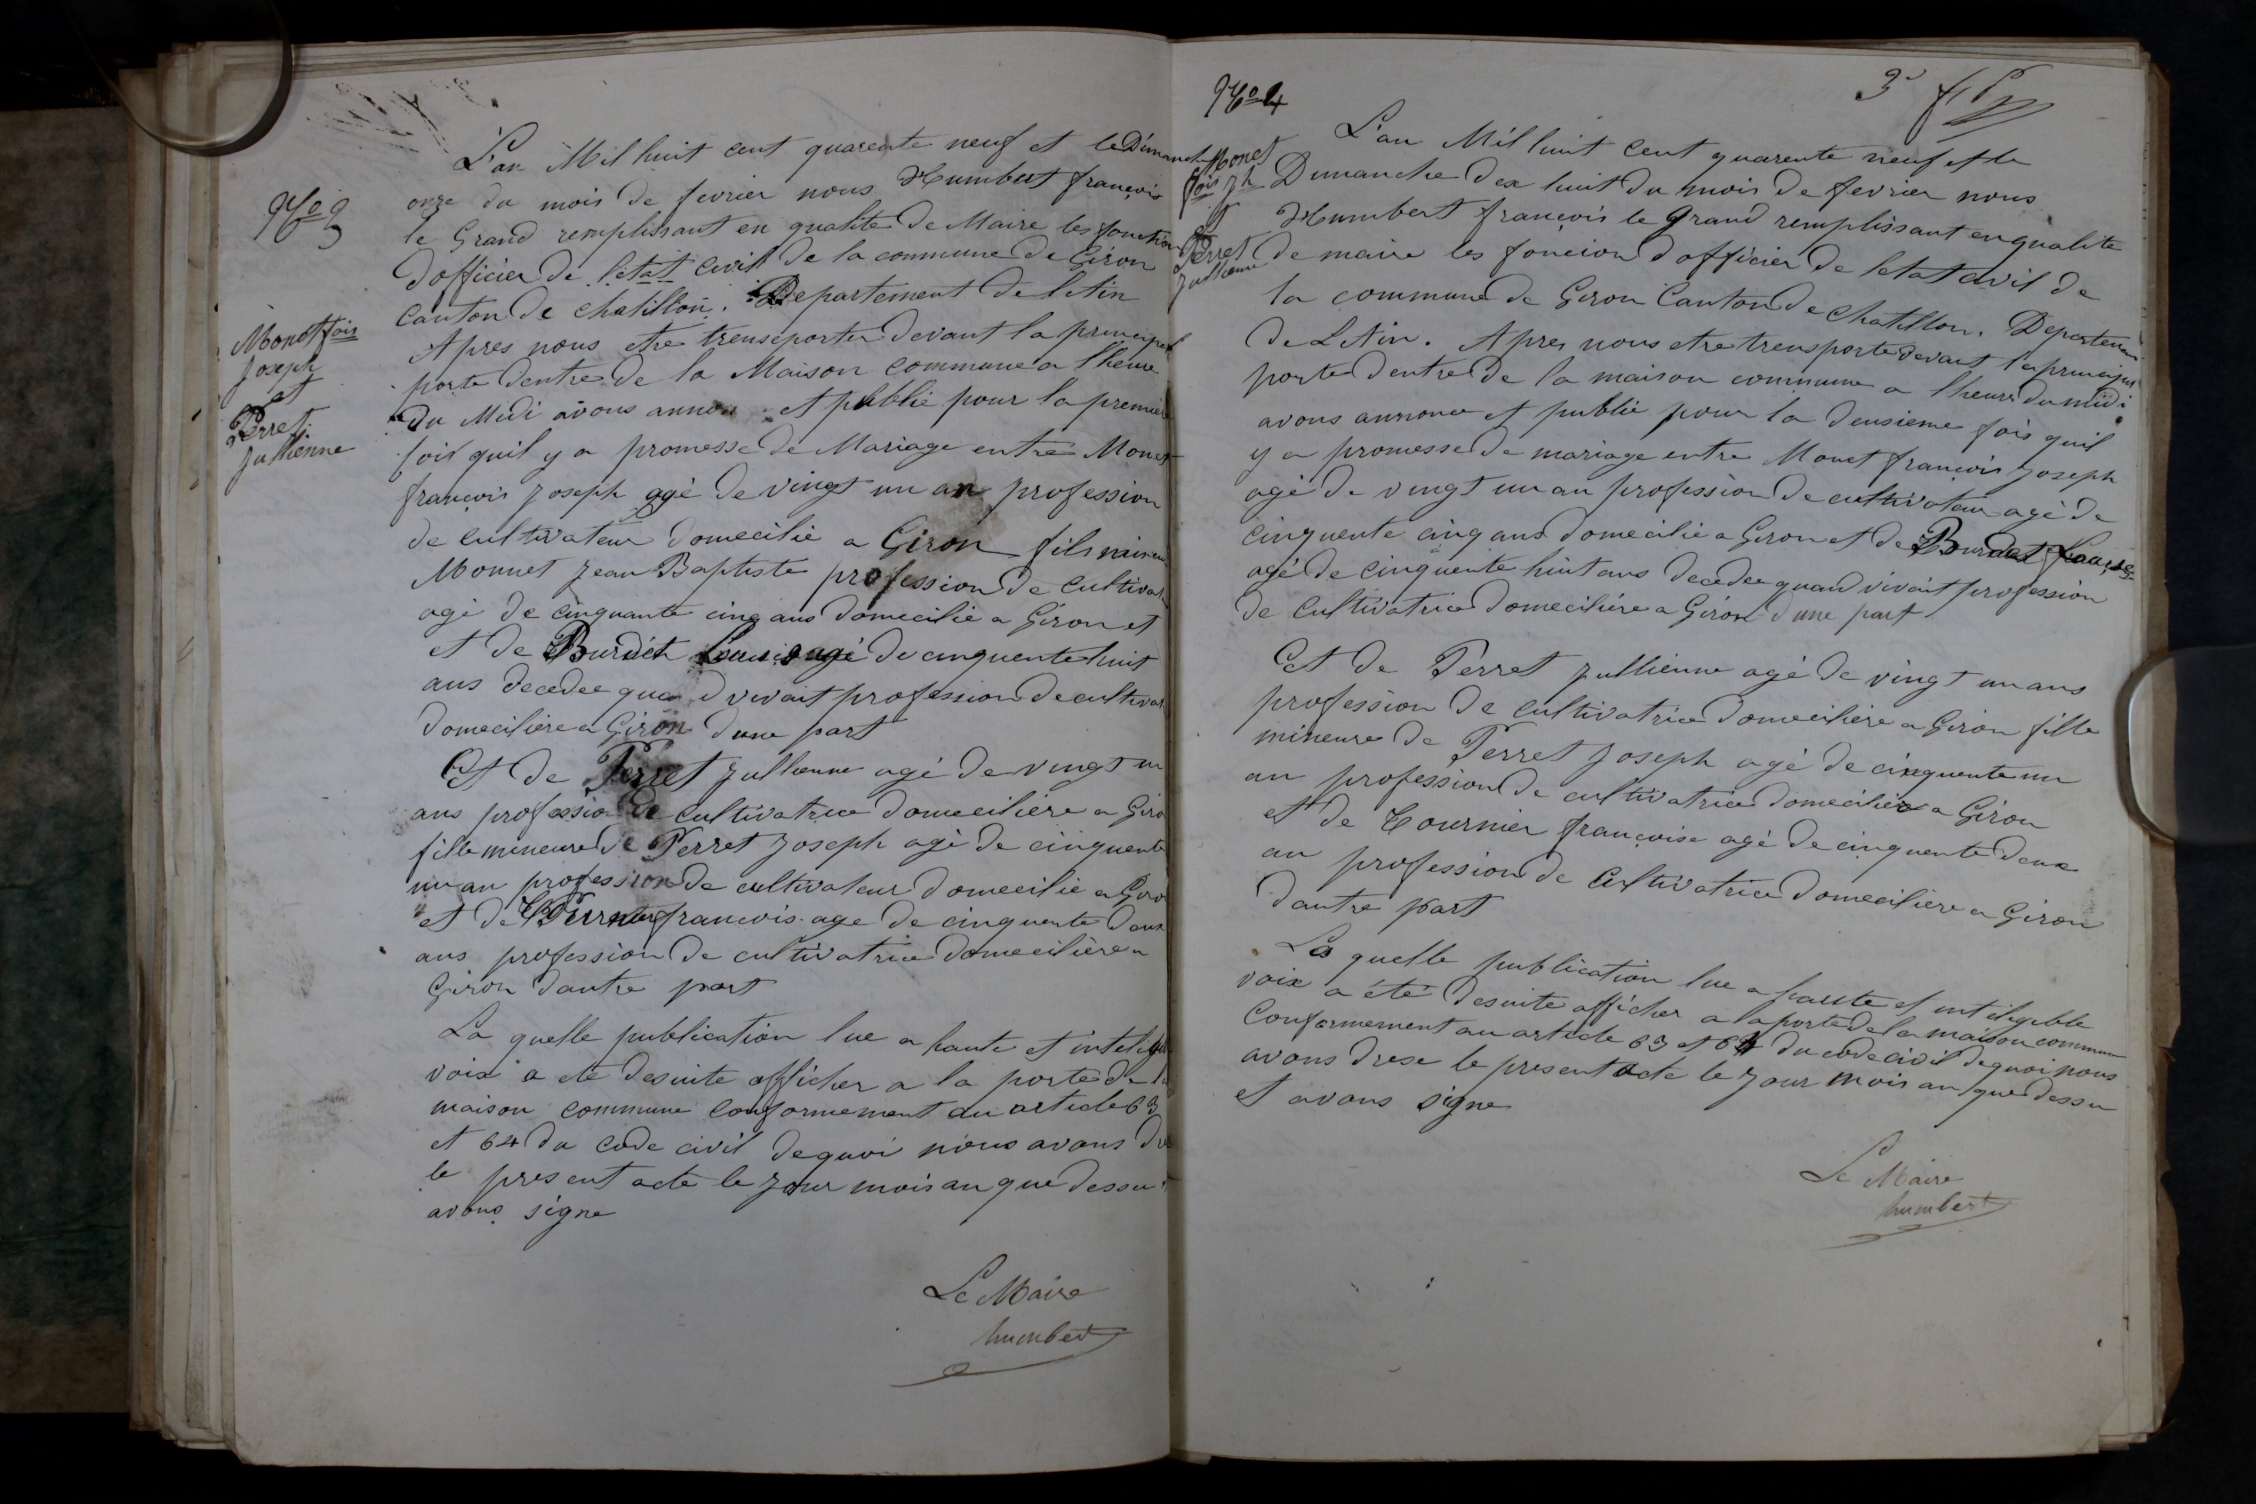 No 3
Monet fois
Joseph
et
Perret
Jullienne
L'an Mil huit cent quarente neuf et le Dimanche
onze du mois de fevrier nous Humbert françois
le Grand remplissant en qualité de Maire les fonction
d'officier de l'etat civil de la commune de Giron
canton de chatillon. Departement de l'Ain
Apres nous etre trensporter devant la principal
porte dentre de la Maison commune a lheure
du Midi avons annon et publié pour la premiere
fois quil y a promesse de Mariage entre Monet
françois Joseph agé de vingt un an profession
de cultivateur domecilié a Giron fils mineur
Monnet Jean Baptiste profession de cultivat
agé de cinquante cinq ans domicilié a Giron et
et de Burdet Louise agé de cinquente huit
ans decedee quand vivait profession de cultivat
domeciliere a Giron dune part
Et de Perret Jullienne agé de vingt un
ans profession de cultivatrice domeciliere a Giro
fille mineure de Perret Joseph agé de cinquente
un an profession de cultivateur domecilié a Giro
et de Tournier francois age de cinquente deux
ans profession de cultivatrice domecilière a
Giron dautre part
La quelle publication lue a haute et inteligible
voix a ete desuite afficher a la porte de la
maison commune conformement au article 63
et 64 du code civil dequoi nous avons dre
le present acte le jour mois an que dessu
avons signe
Le Maire
humbert
No 4
3e
Monet
fois Jh
et
Perret
Jullienne
L'an Mil huit cent quarente neuf et le
Dimanche dix huit du mois de fevrier nous
Humbert françois le Grand remplissant enqualite
de maire les foncion d'officier de letat civil de
la commune de Giron Canton de chatillon. Departemen
de LAin. Apres nous etre trensporte devant la principal
porte dentre de la maison commune a lheure du midi
avons annonce et publié pour la deusieme fois quil
y a promesse de mariage entre Monet françois Joseph
agé de vingt un an profession de cultivateur agé de
cinquente cinq ans domecilié a Giron et de Bourdet Louise
agé de cinquente huit ans decedee quand vivait profession
de cultivatrice domecilière a Giron dune part
Et de Perret Jullienne agé de vingt un ans
profession de cultivatrice domecilière a Giron fille
mineure de Perret Joseph agé de cinquente un
an profession de cultivatrice domecilier a Giron
et de Tournier françoise agé de cinquente deux
an profession de cultivatrice domeciliere a Giron
dautre part
La quelle publication lue a haute et inteligible
voix a été desuite afficher a la porte de la maison commun
conformement au article 63 et 64 du code civil dequoi nous
avons drese le present acte le jour mois an que dessu
et avons signe
Le Maire
humbert